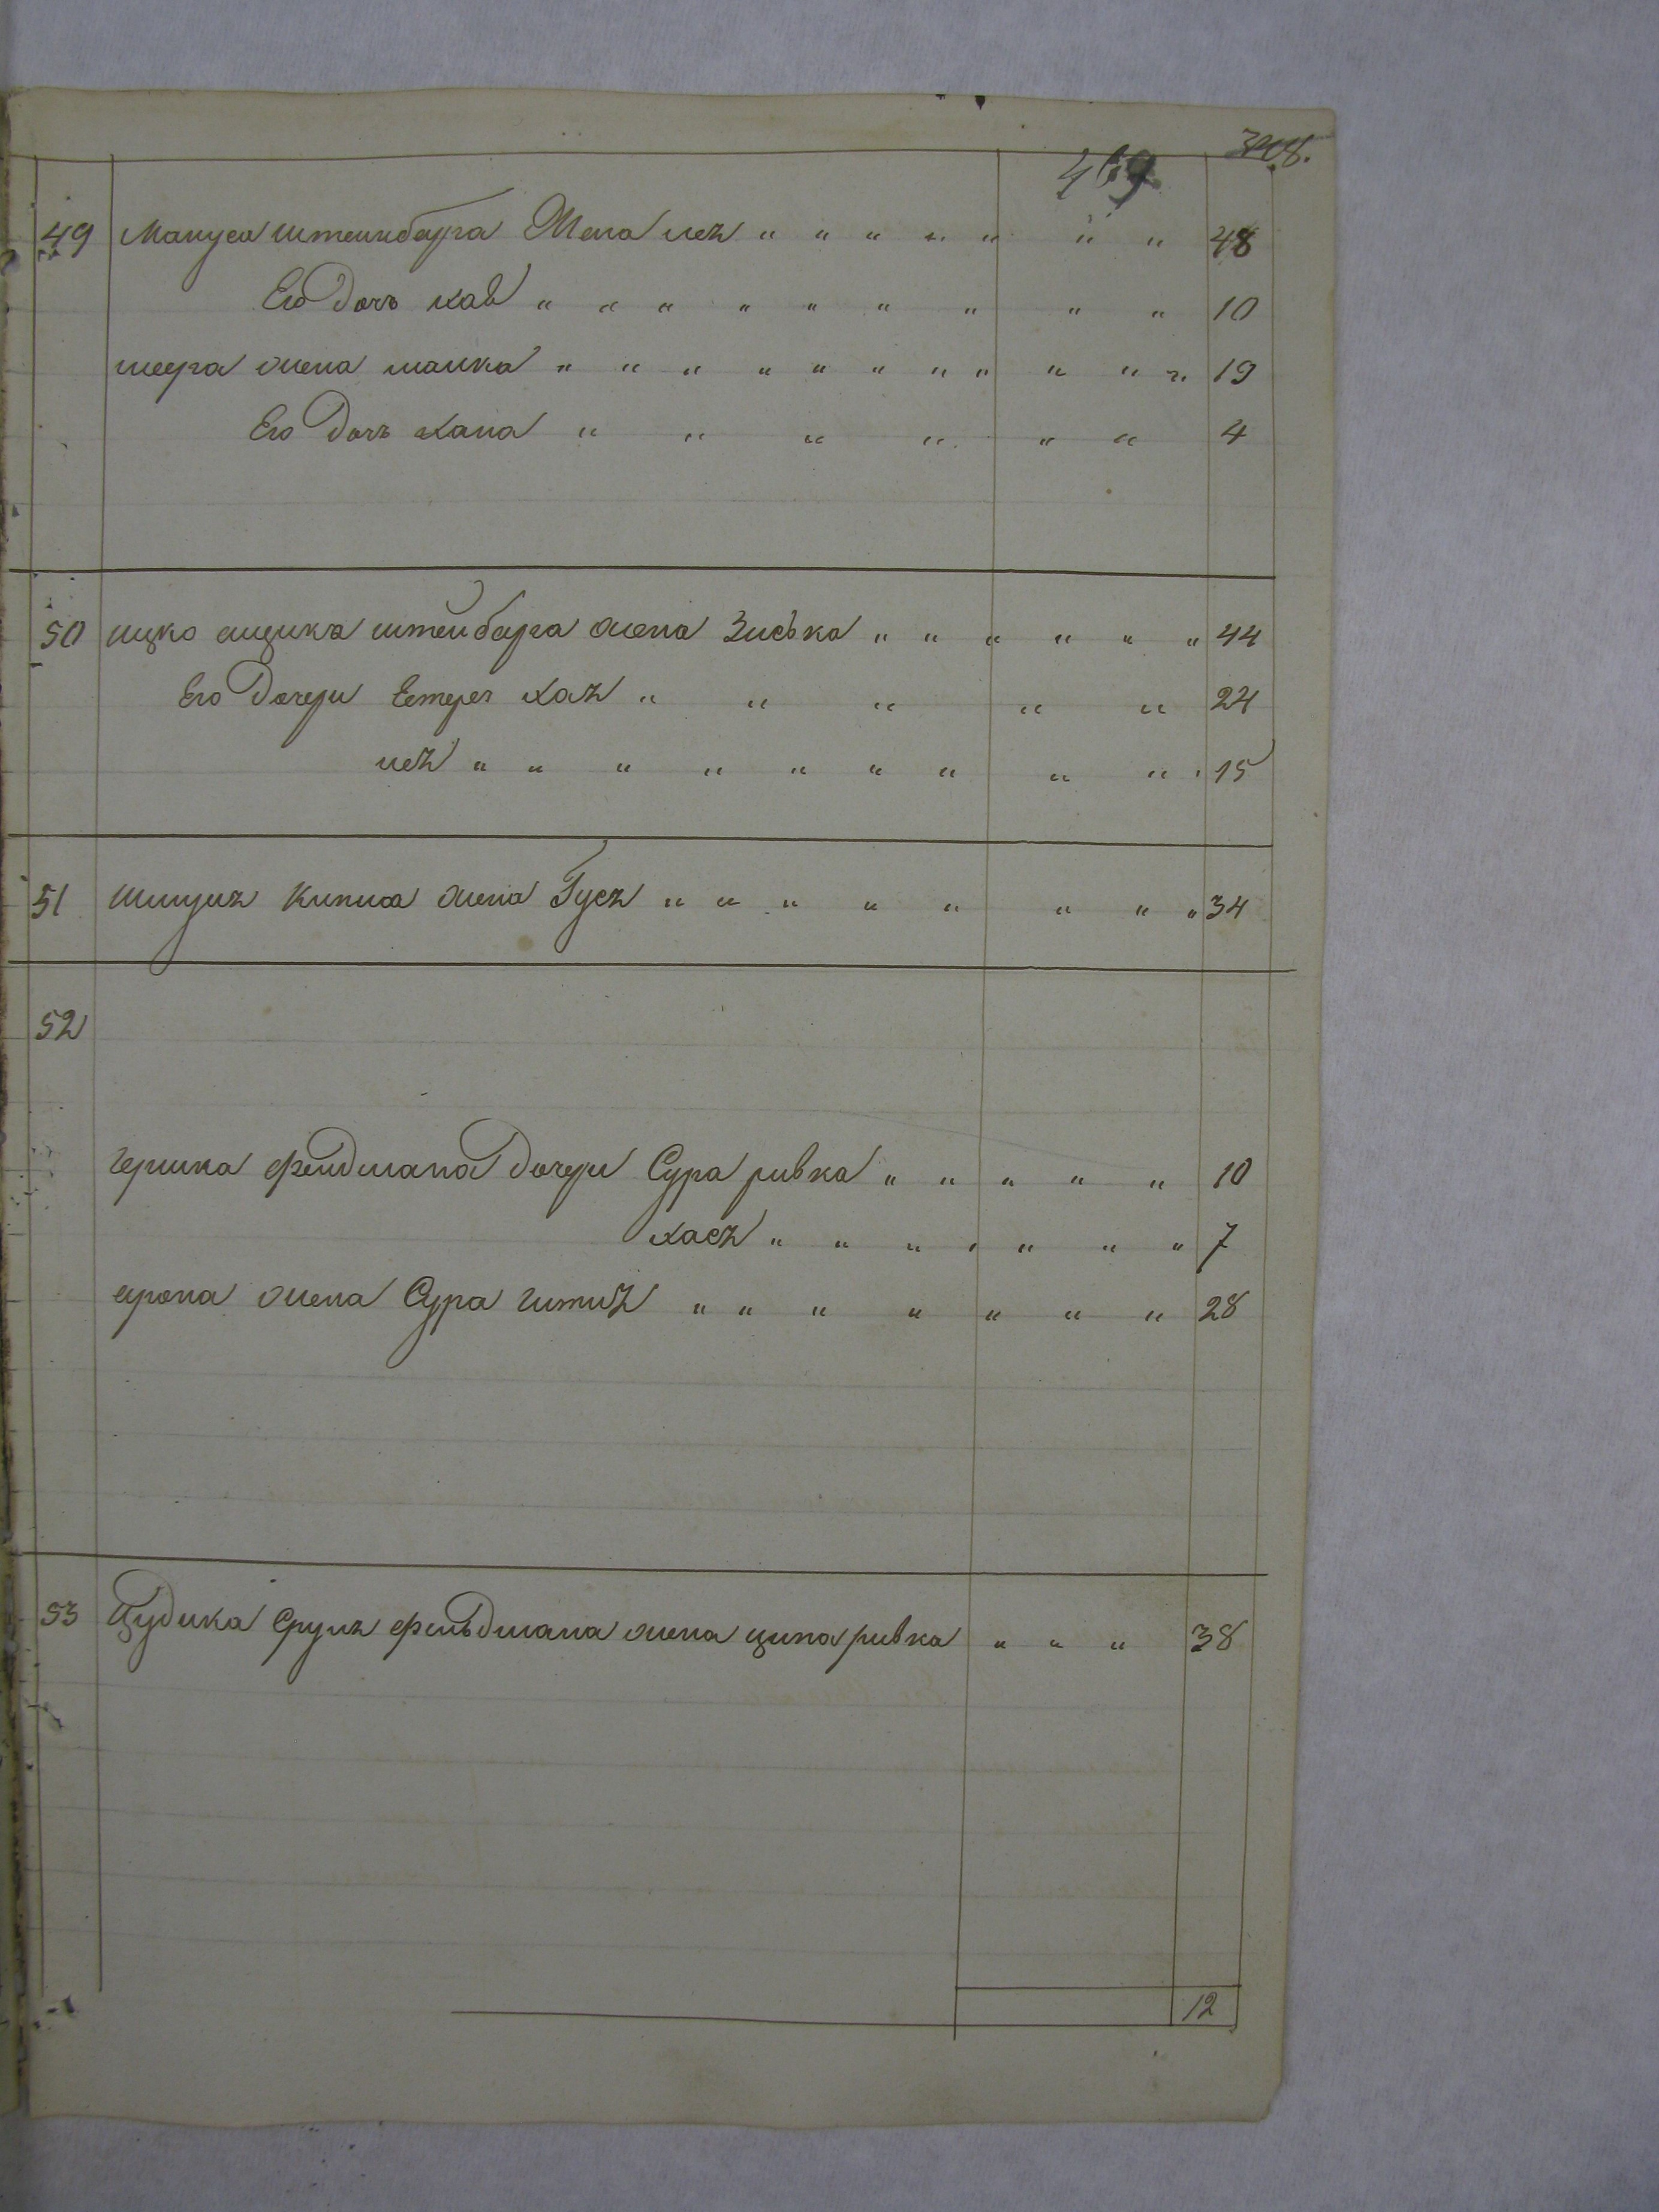 469 308.
49 Мануса штеинбарга Жена лея " " " " " " " 48
Его Дочь хав " " " " " " " " " 10
меера жена малка " " " " " " " " " " " 19
Его Дочь хана " " " " " " 4
50 ицко аицика штеинбарга жена Зиська " " " " " " 44
Его Дочери Естер хая " " " " " 24
лея " " " " " " " " " 15
51 жена Гуся " " " " " " " " 34
52
гершка фелдмана Дочери Сура ривка " " " " " 10
хася " " " " " " " 7
арона жена Сура гитля " " " " " " " 28
53 Дудика Срула фельдмана жена ципа ривка " " " 38
12